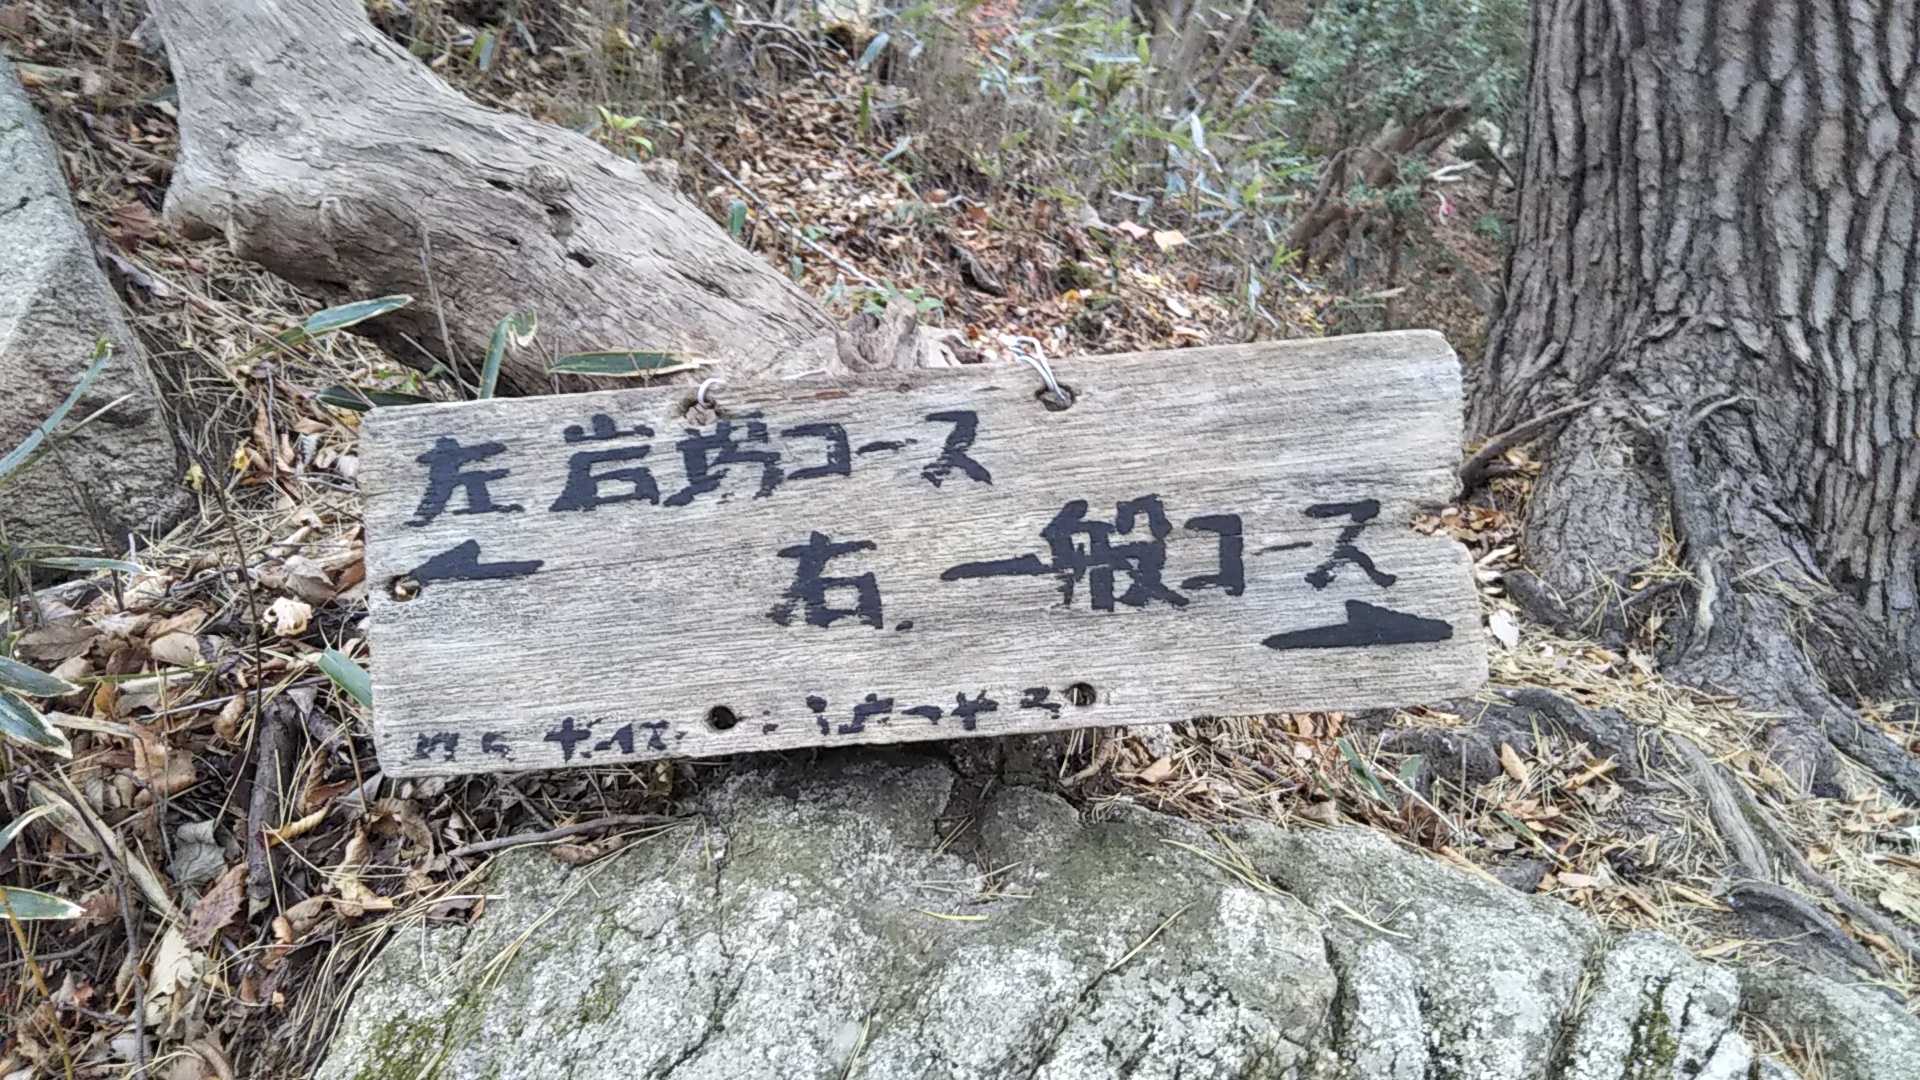 左 岩場コース
右 一般コース